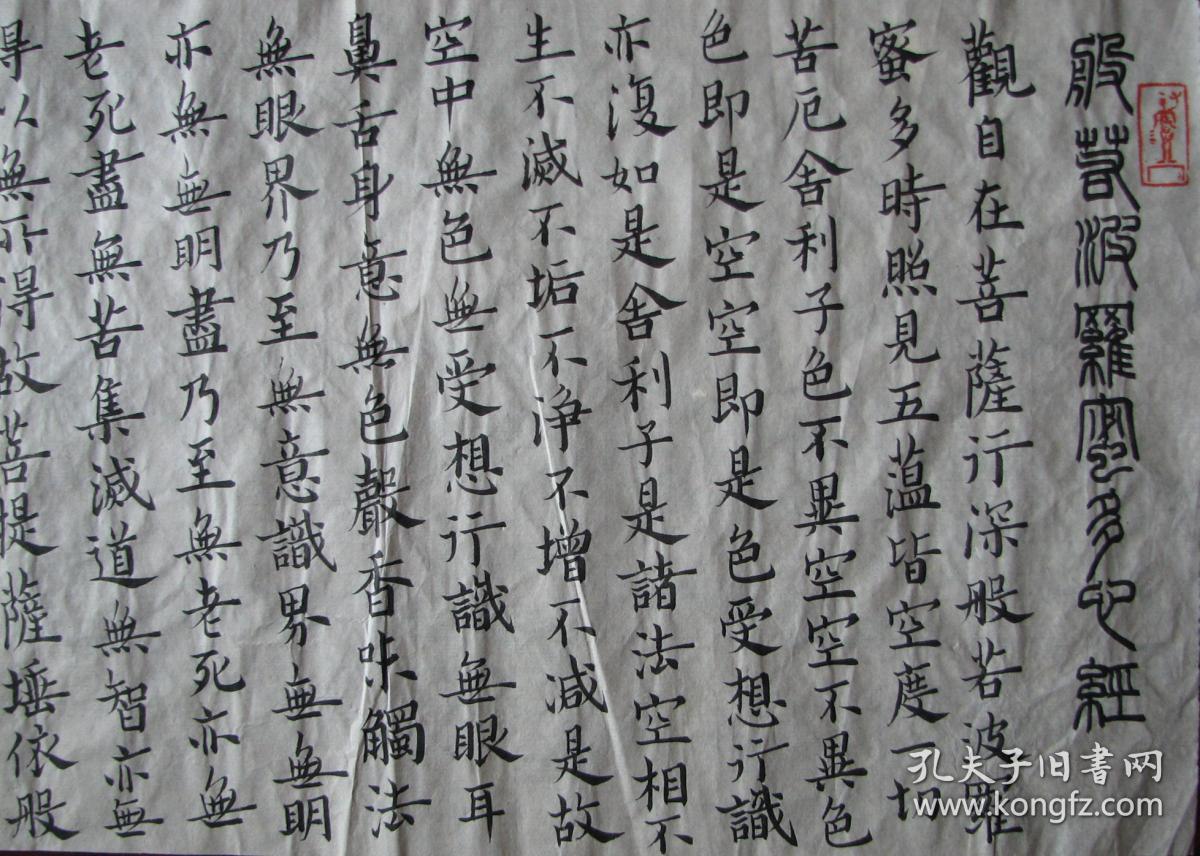 般若波羅蜜多心經
觀自在菩薩行深般若波羅
蜜多時照見五蕰皆空度一切
苦厄舍利子色不異空空不異色
色即是空空即是色受想行識
亦復如是舍利子是諸法空相不
生不滅不垢不净不增不減是故
空中無色無受想行識無眼耳
鼻舌身意無色聲香味觸法
無眼界乃至無意識界無無明
亦無無明盡乃至無老死亦無
老死盡無苦集滅道無智亦無
得以無所得故菩提薩埵依般
孔夫子旧书网
www.kongfz.com